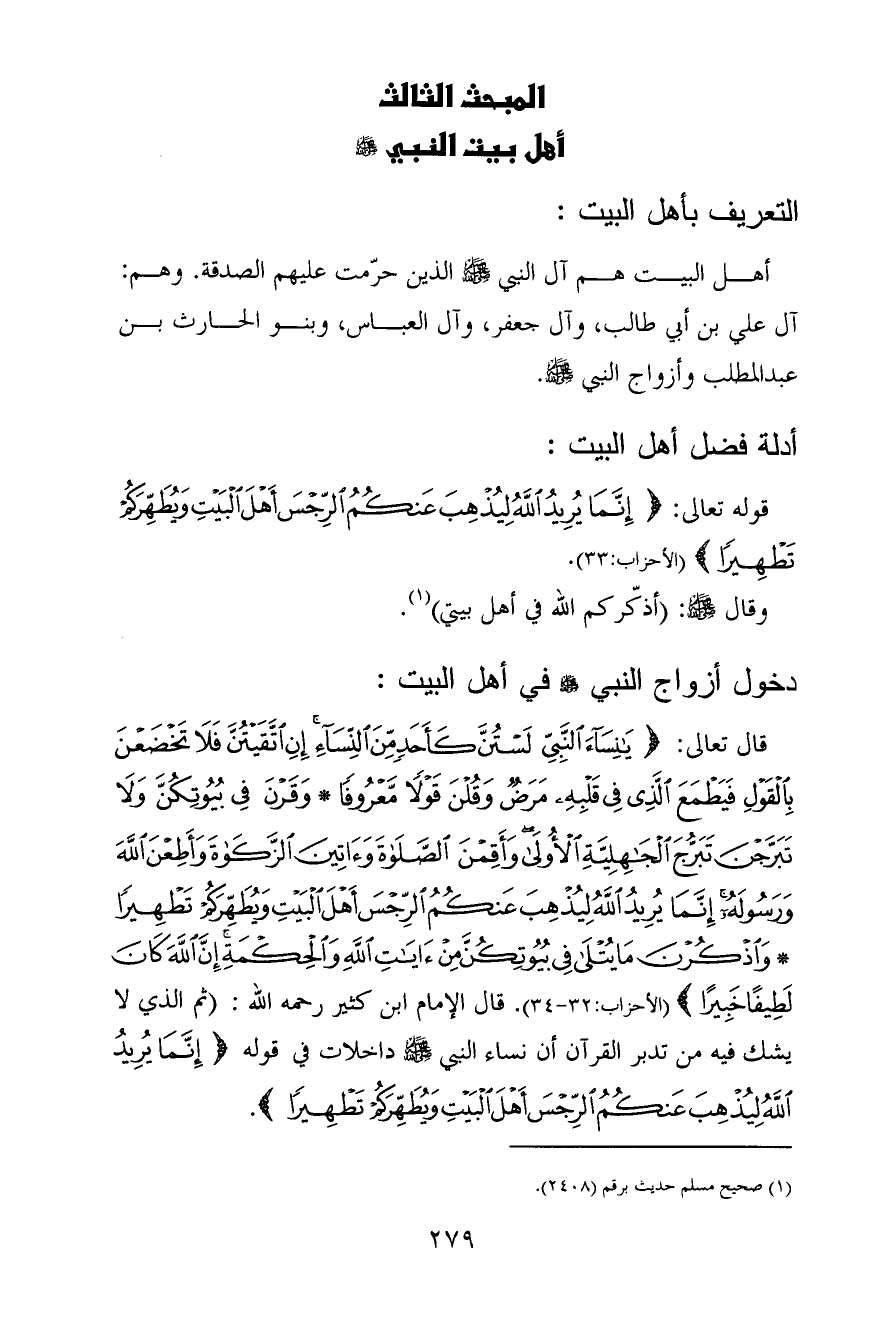 المبحث الثالث
أهل بيت النبي ﷺ
التعريف بأهل البيت :
أهـــل البيـــت هـــم آل النبي ﷺ الذين حرّمت عليهم الصدقة. وهـم:
آل علي بن أبي طالب، وآل جعفر، وآل العبـاس، وبنـو الحـارث بـن
عبدالمطلب وأزواج النبي ﷺ.
أدلة فضل أهل البيت :
قوله تعالى: ﴿ إِنَّمَا يُرِيدُ ٱللَّهُ لِيُذْهِبَ عَنكُمُ ٱلرِّجْسَ أَهْلَ ٱلْبَيْتِ وَيُطَهِّرَكُمْ
تَطْهِيرًا ﴾ (الأحزاب:٣٣).
وقال ﷺ: (أذكّركم الله في أهل بيتي)(١).
دخول أزواج النبي ﷺ في أهل البيت :
قال تعالى: ﴿ يَٰنِسَآءَ ٱلنَّبِيِّ لَسْتُنَّ كَأَحَدٍ مِّنَ ٱلنِّسَآءِ ۚ إِنِ ٱتَّقَيْتُنَّ فَلَا تَخْضَعْنَ
بِٱلْقَوْلِ فَيَطْمَعَ ٱلَّذِى فِى قَلْبِهِۦ مَرَضٌ وَقُلْنَ قَوْلًا مَّعْرُوفًا * وَقَرْنَ فِى بُيُوتِكُنَّ وَلَا
تَبَرَّجْنَ تَبَرُّجَ ٱلْجَٰهِلِيَّةِ ٱلْأُولَىٰ ۖ وَأَقِمْنَ ٱلصَّلَوٰةَ وَءَاتِينَ ٱلزَّكَوٰةَ وَأَطِعْنَ ٱللَّهَ
وَرَسُولَهُۥٓ ۚ إِنَّمَا يُرِيدُ ٱللَّهُ لِيُذْهِبَ عَنكُمُ ٱلرِّجْسَ أَهْلَ ٱلْبَيْتِ وَيُطَهِّرَكُمْ تَطْهِيرًا
* وَٱذْكُرْنَ مَا يُتْلَىٰ فِى بُيُوتِكُنَّ مِنْ ءَايَٰتِ ٱللَّهِ وَٱلْحِكْمَةِ ۚ إِنَّ ٱللَّهَ كَانَ
لَطِيفًا خَبِيرًا ﴾ (الأحزاب:٣٢-٣٤). قال الإمام ابن كثير رحمه الله : (ثم الذي لا
يشك فيه من تدبر القرآن أن نساء النبي ﷺ داخلات في قوله ﴿ إِنَّمَا يُرِيدُ
ٱللَّهُ لِيُذْهِبَ عَنكُمُ ٱلرِّجْسَ أَهْلَ ٱلْبَيْتِ وَيُطَهِّرَكُمْ تَطْهِيرًا ﴾.
(١) صحيح مسلم حديث برقم (٢٤٠٨).
٢٧٩